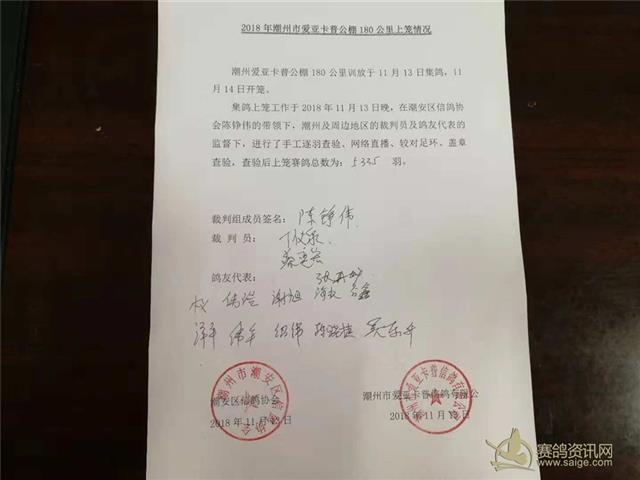 2018年潮州市爱亚卡普公棚180公里上笼情况
潮州爱亚卡普公棚180公里训放于11月13日集鸽,11
月14日开笼。
集鸽上笼工作于2018年11月13日晚,在潮安区信鸽协
会陈铮伟的带领下,潮州及周边地区的裁判员及鸽友代表的
监督下,进行了手工逐羽查验、网络直播、较对足环、盖章
查验,查验后上笼赛鸽总数为:5335 羽。
裁判组成员签名:陈铮伟
裁 判 员:
鸽友代表:
潮州市潮安区信鸽协会
潮安区信鸽协会
2018年11月13日
潮州市爱亚卡普信鸽有限公司
潮州市爱亚卡普信鸽有限公
2018年11月13日
赛鸽资讯网
www.saige.com